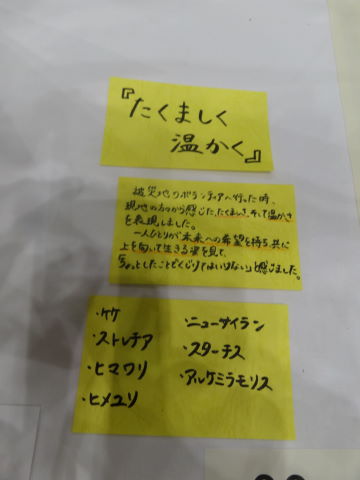 『たくましく
温かく』
被災地のボランティアへ行った時、
現地の方々から感じた、たくましさ、そして温かさ
を表現しました。
一人ひとりが未来への希望を持ち、共に
上を向いて生きる姿を見て、
「ちょっとしたことでくじけてはいけない」と感じました。
・ケケ
・ストレチア
・ヒマワリ
・ヒメユリ
・ニューサイラン
・スターチス
・アルケミラモリス